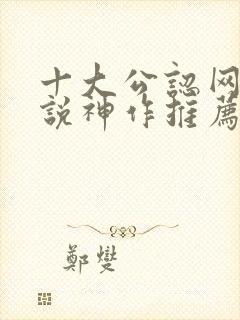 十大公認网
説神作推薦
鄭燮